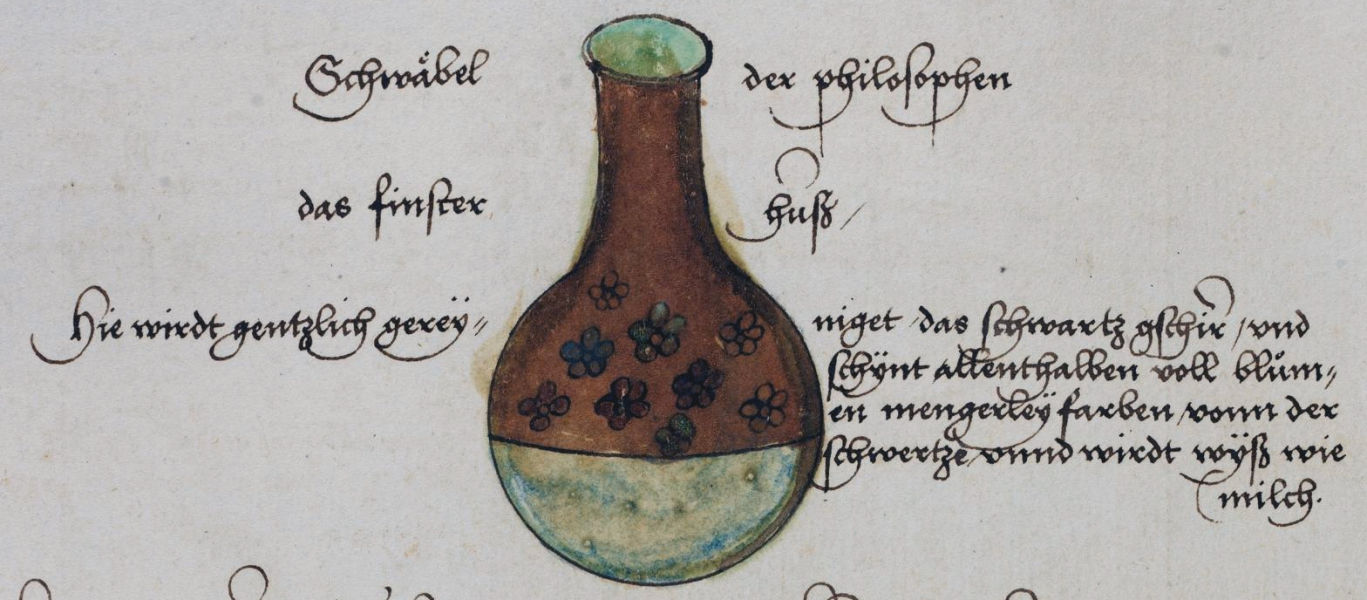 Schwåbel der philosophen
das finster huß /
Hie wirdt gentzlich gereÿ= niget das schwartz gschir / vnd
schÿnt allenthalben voll blům=
en mengerleÿ farben / vonn der
schwertze / vnnd wirdt wÿß wie
milch.